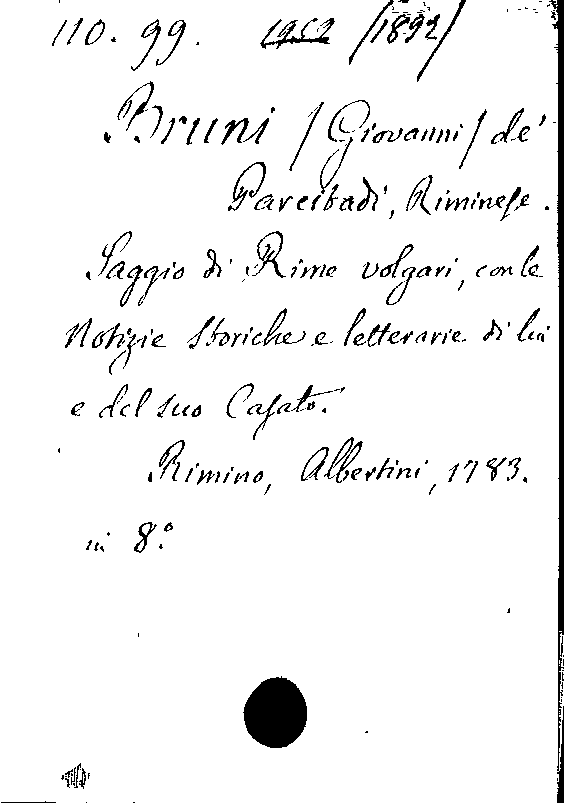 110. 99. 1952 /1892/
Bruni / Giovanni / de'
Parcitadi, Riminese.
Saggio di Rime volgari, con le
Notizie storiche e letterarie di lui
e del suo Casato.
Rimino, Albertini, 1783.
in 8.º